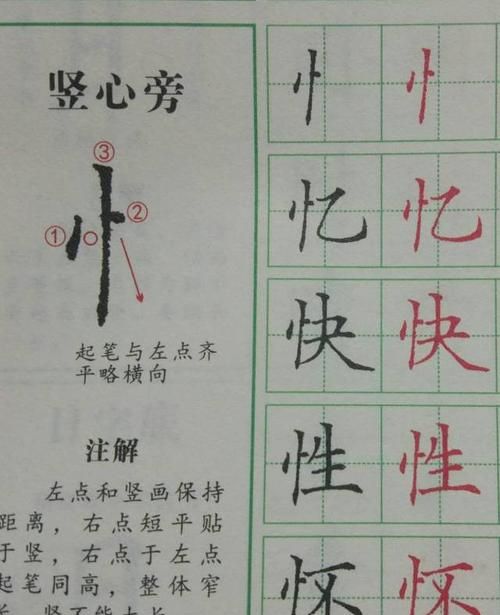 竖心旁
③
①
②
忄
起笔与左点齐
平略横向
注解
左点和竖画保持
距离，右点短平贴
于竖，右点于左点
起笔同高，整体窄
长，竖不能太长
忄 忄
忆 忆
快 快
性 性
怀 怀